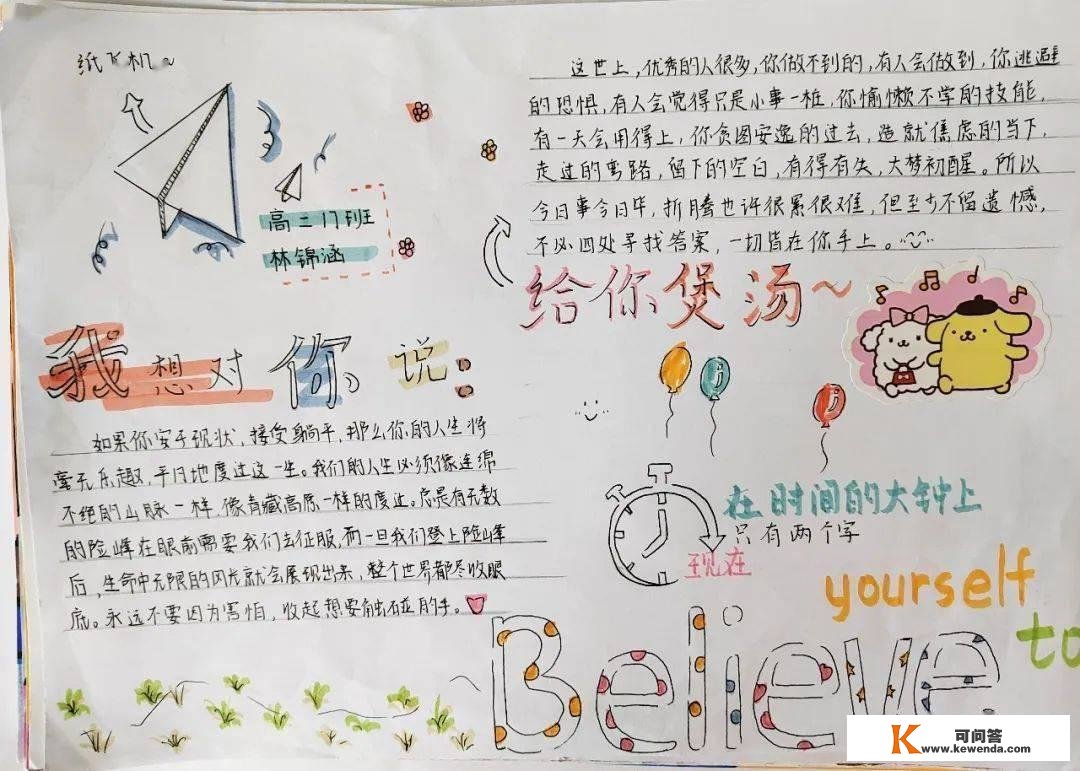 纸飞机~
高二17班
林锦涵
这世上,优秀的人很多,你做不到的,有人会做到,你逃避
的恐惧,有人会觉得只是小事一桩,你偷懒不学的技能,
有一天会用得上,你贪图安逸的过去,造就焦虑的当下,
走过的弯路,留下的空白,有得有失,大梦初醒。所以
今日事今日毕,折腾也许很累很难,但至少不留遗憾,
不必四处寻找答案,一切皆在你手上。
给你煲汤~
我想对你说:
如果你安于现状,接受躺平,那么你的人生将
毫无乐趣,平日地度过这一生。我们的人生必须像连绵
不绝的山脉一样,像青藏高原一样的度过。总是有无数
的险峰在眼前需要我们去征服,而一旦我们登上险峰
后,生命中无限的风光就会展现出来,整个世界都尽收眼
底。永远不要因为害怕,收起想要触碰的手。
j
j
在时间的大钟上
只有两个字
现在
yourself
to
Believe
K 可问答
www.kewenda.com